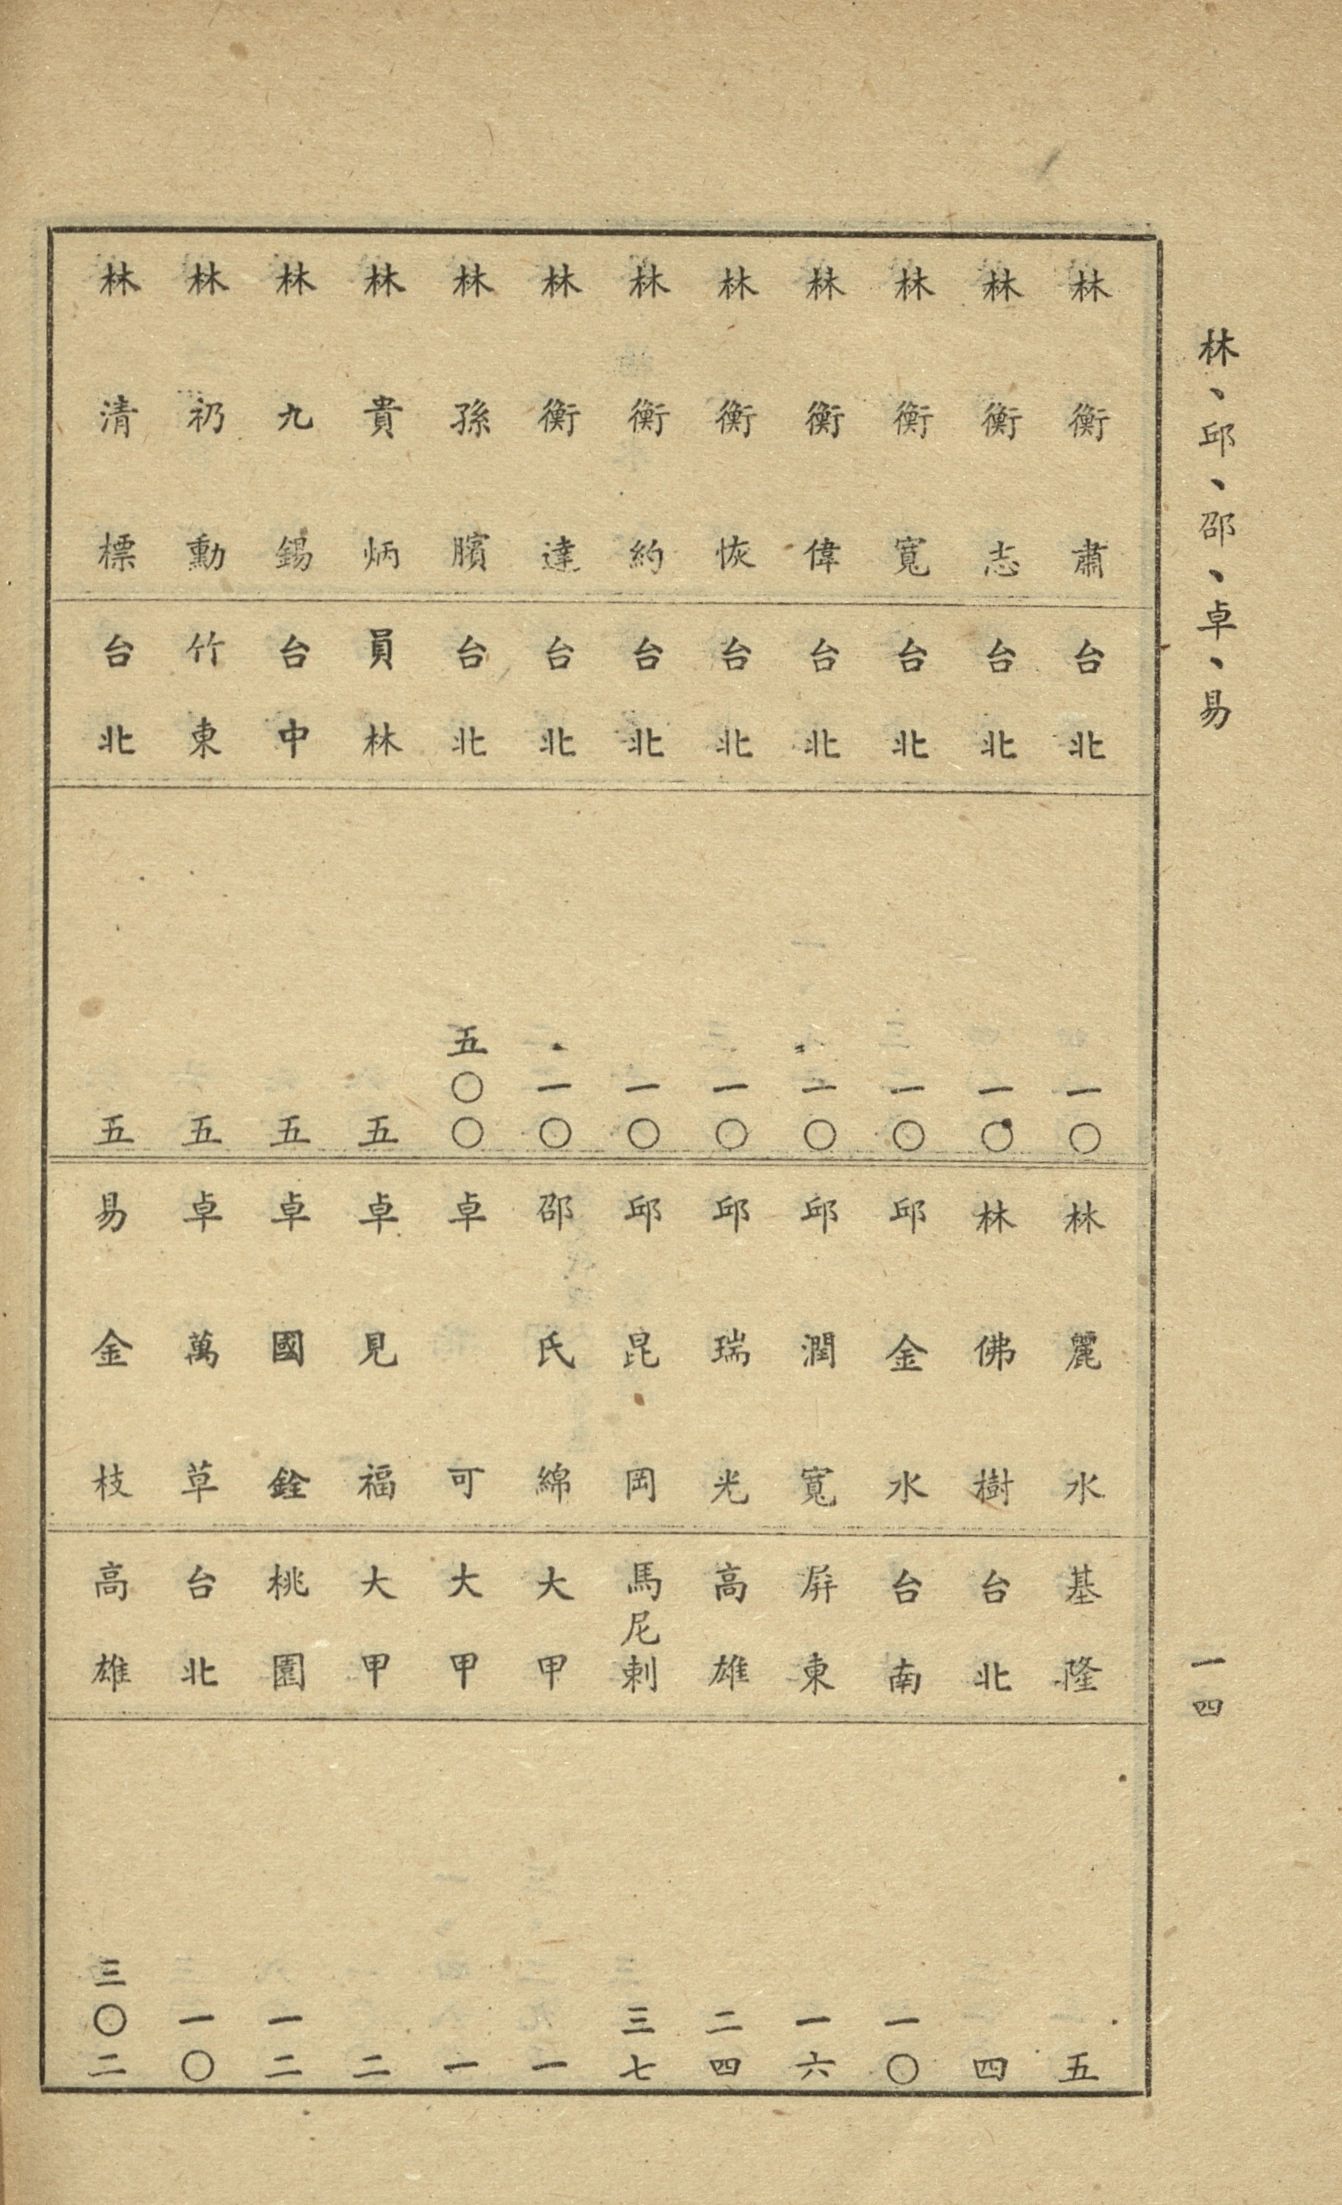 林、邱、邵、卓、易
一四
林衡肅 台北 一〇
林衡志 台北 一〇
林衡寬 台北 一〇
林衡偉 台北 一〇
林衡恢 台北 一〇
林衡約 台北 一〇
林衡達 台北 一〇
林孫臏 台北 五〇〇
林貴炳 員林 五
林九錫 台中 五
林礽勳 竹東 五
林清標 台北 五
林麗水 基隆 五
林佛樹 台北 四
邱金水 台南 一〇
邱潤寬 屏東 一六
邱瑞光 高雄 二四
邱昆岡 馬尼剌 三七
邵氏綿 大甲 一
卓可 大甲 一
卓見福 大甲 二
卓國銓 桃園 一二
卓萬草 台北 一〇
易金枝 高雄 三〇二